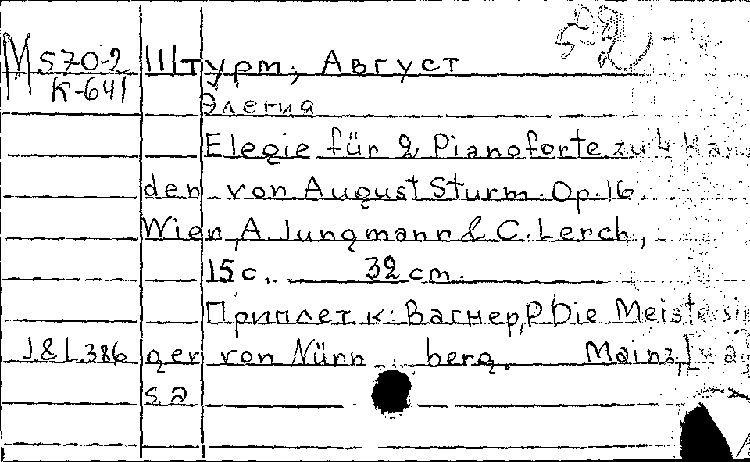 M 570-2 Штурм, Август
К-641 Элегия
Elegie für 2 Pianoforte zu 4 Hän
den von August Sturm. Op. 16.
Wien, A. Jungmann & C. Lerch,
15 с. 32 cm.
Приплет. к: Вагнер, Р Die Meistersin
J.&L.386 ger von Nürn berg. Mainz,
s.a